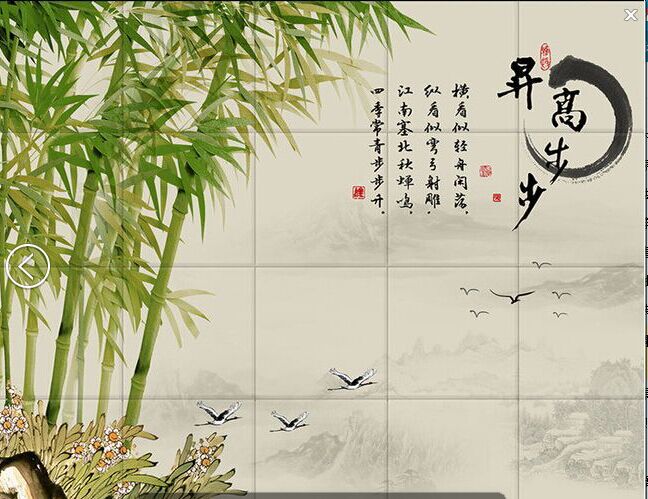 步步高昇
横看似轻舟闲落，
纵看似弯弓射雕，
江南塞北秋蝉鸣，
四季常青步步升。